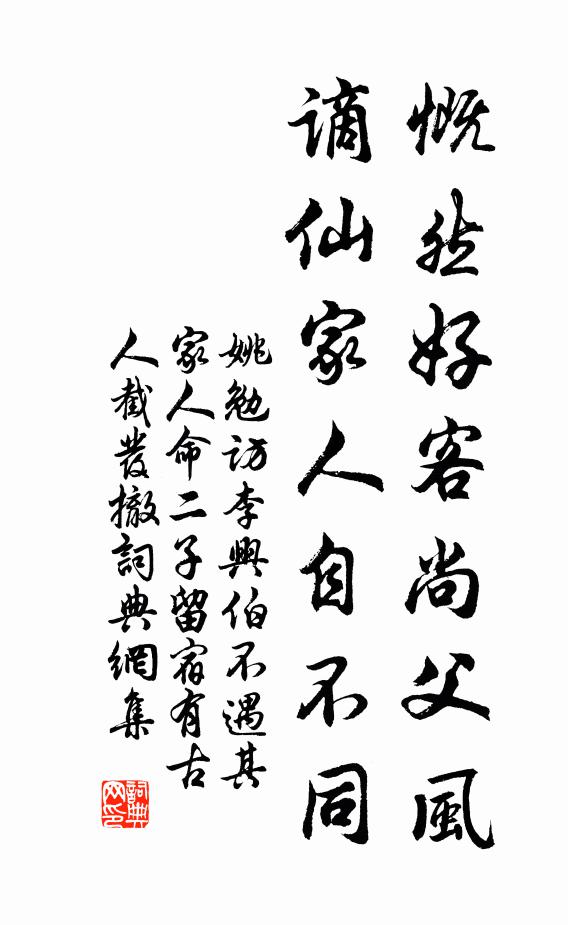 慨然好客尚父風
謫仙家人自不同
姚勉訪李興伯不遇其
家人命二子留宿有古
人截發撤詞典網集
詞典
网印